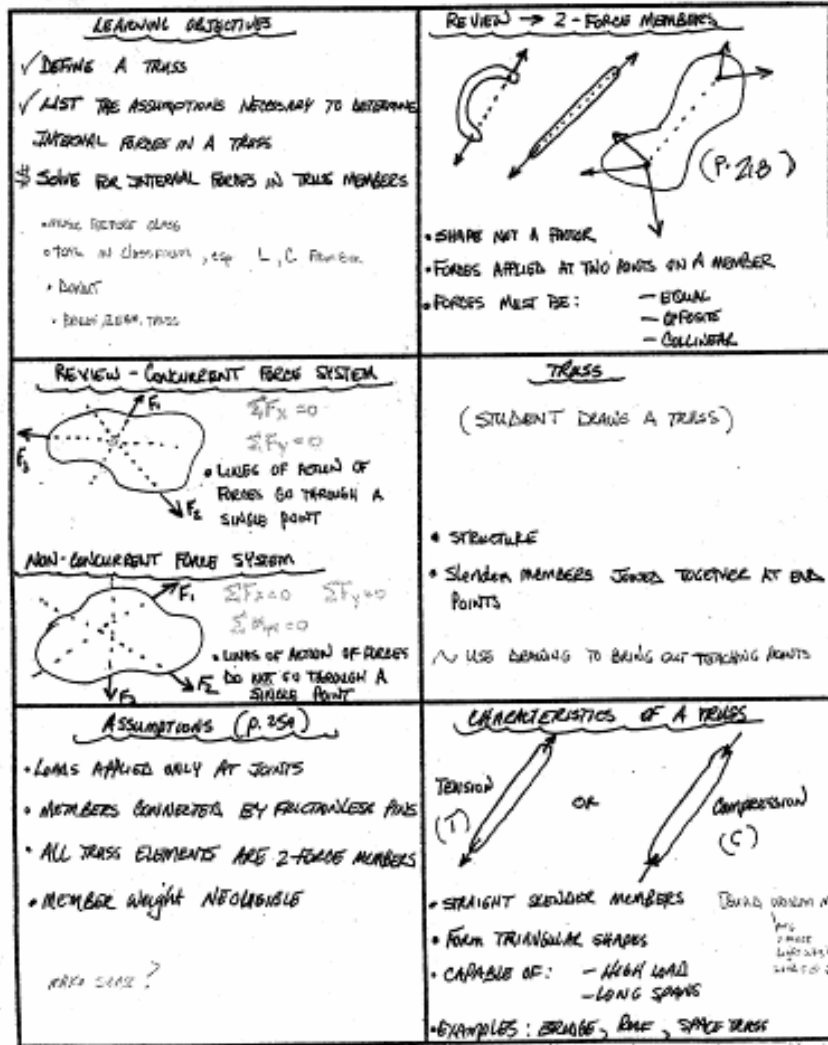 LEARNING OBJECTIVES
✓ DEFINE A TRUSS
✓ LIST THE ASSUMPTIONS NECESSARY TO DETERMINE
INTERNAL FORCES IN A TRUSS
$ SOLVE FOR INTERNAL FORCES IN TRUSS MEMBERS
• MUSIC BEFORE CLASS
IN CLASSROOM, esp L, C
REVIEW → 2-FORCE MEMBERS
(P. 218)
• SHAPE NOT A FACTOR
• FORCES APPLIED AT TWO POINTS ON A MEMBER
• FORCES MUST BE: — EQUAL
— OPPOSITE
— COLLINEAR
REVIEW - CONCURRENT FORCE SYSTEM
F1
F2
F3
ΣFx = 0
ΣFy = 0
• LINES OF ACTION OF
FORCES GO THROUGH A
SINGLE POINT
NON-CONCURRENT FORCE SYSTEM
F1
F2
F3
ΣFx = 0 ΣFy = 0
• LINES OF ACTION OF FORCES
DO NOT GO THROUGH A
SINGLE POINT
TRUSS
(STUDENT DRAWS A TRUSS)
• STRUCTURE
• Slender MEMBERS JOINED TOGETHER AT END
POINTS
~ USE DRAWING TO BRING OUT TEACHING POINTS
ASSUMPTIONS (p. 259)
• LOADS APPLIED ONLY AT JOINTS
• MEMBERS CONNECTED BY FRICTIONLESS PINS
• ALL TRUSS ELEMENTS ARE 2-FORCE MEMBERS
• MEMBER Weight NEGLIGIBLE
MAKE SENSE?
CHARACTERISTICS OF A TRUSS
TENSION
(T)
OR
COMPRESSION
(C)
• STRAIGHT SLENDER MEMBERS
• FORM TRIANGULAR SHAPES
• CAPABLE OF: — HIGH LOAD
— LONG SPANS
• EXAMPLES: BRIDGE, ROOF, SPACE TRUSS